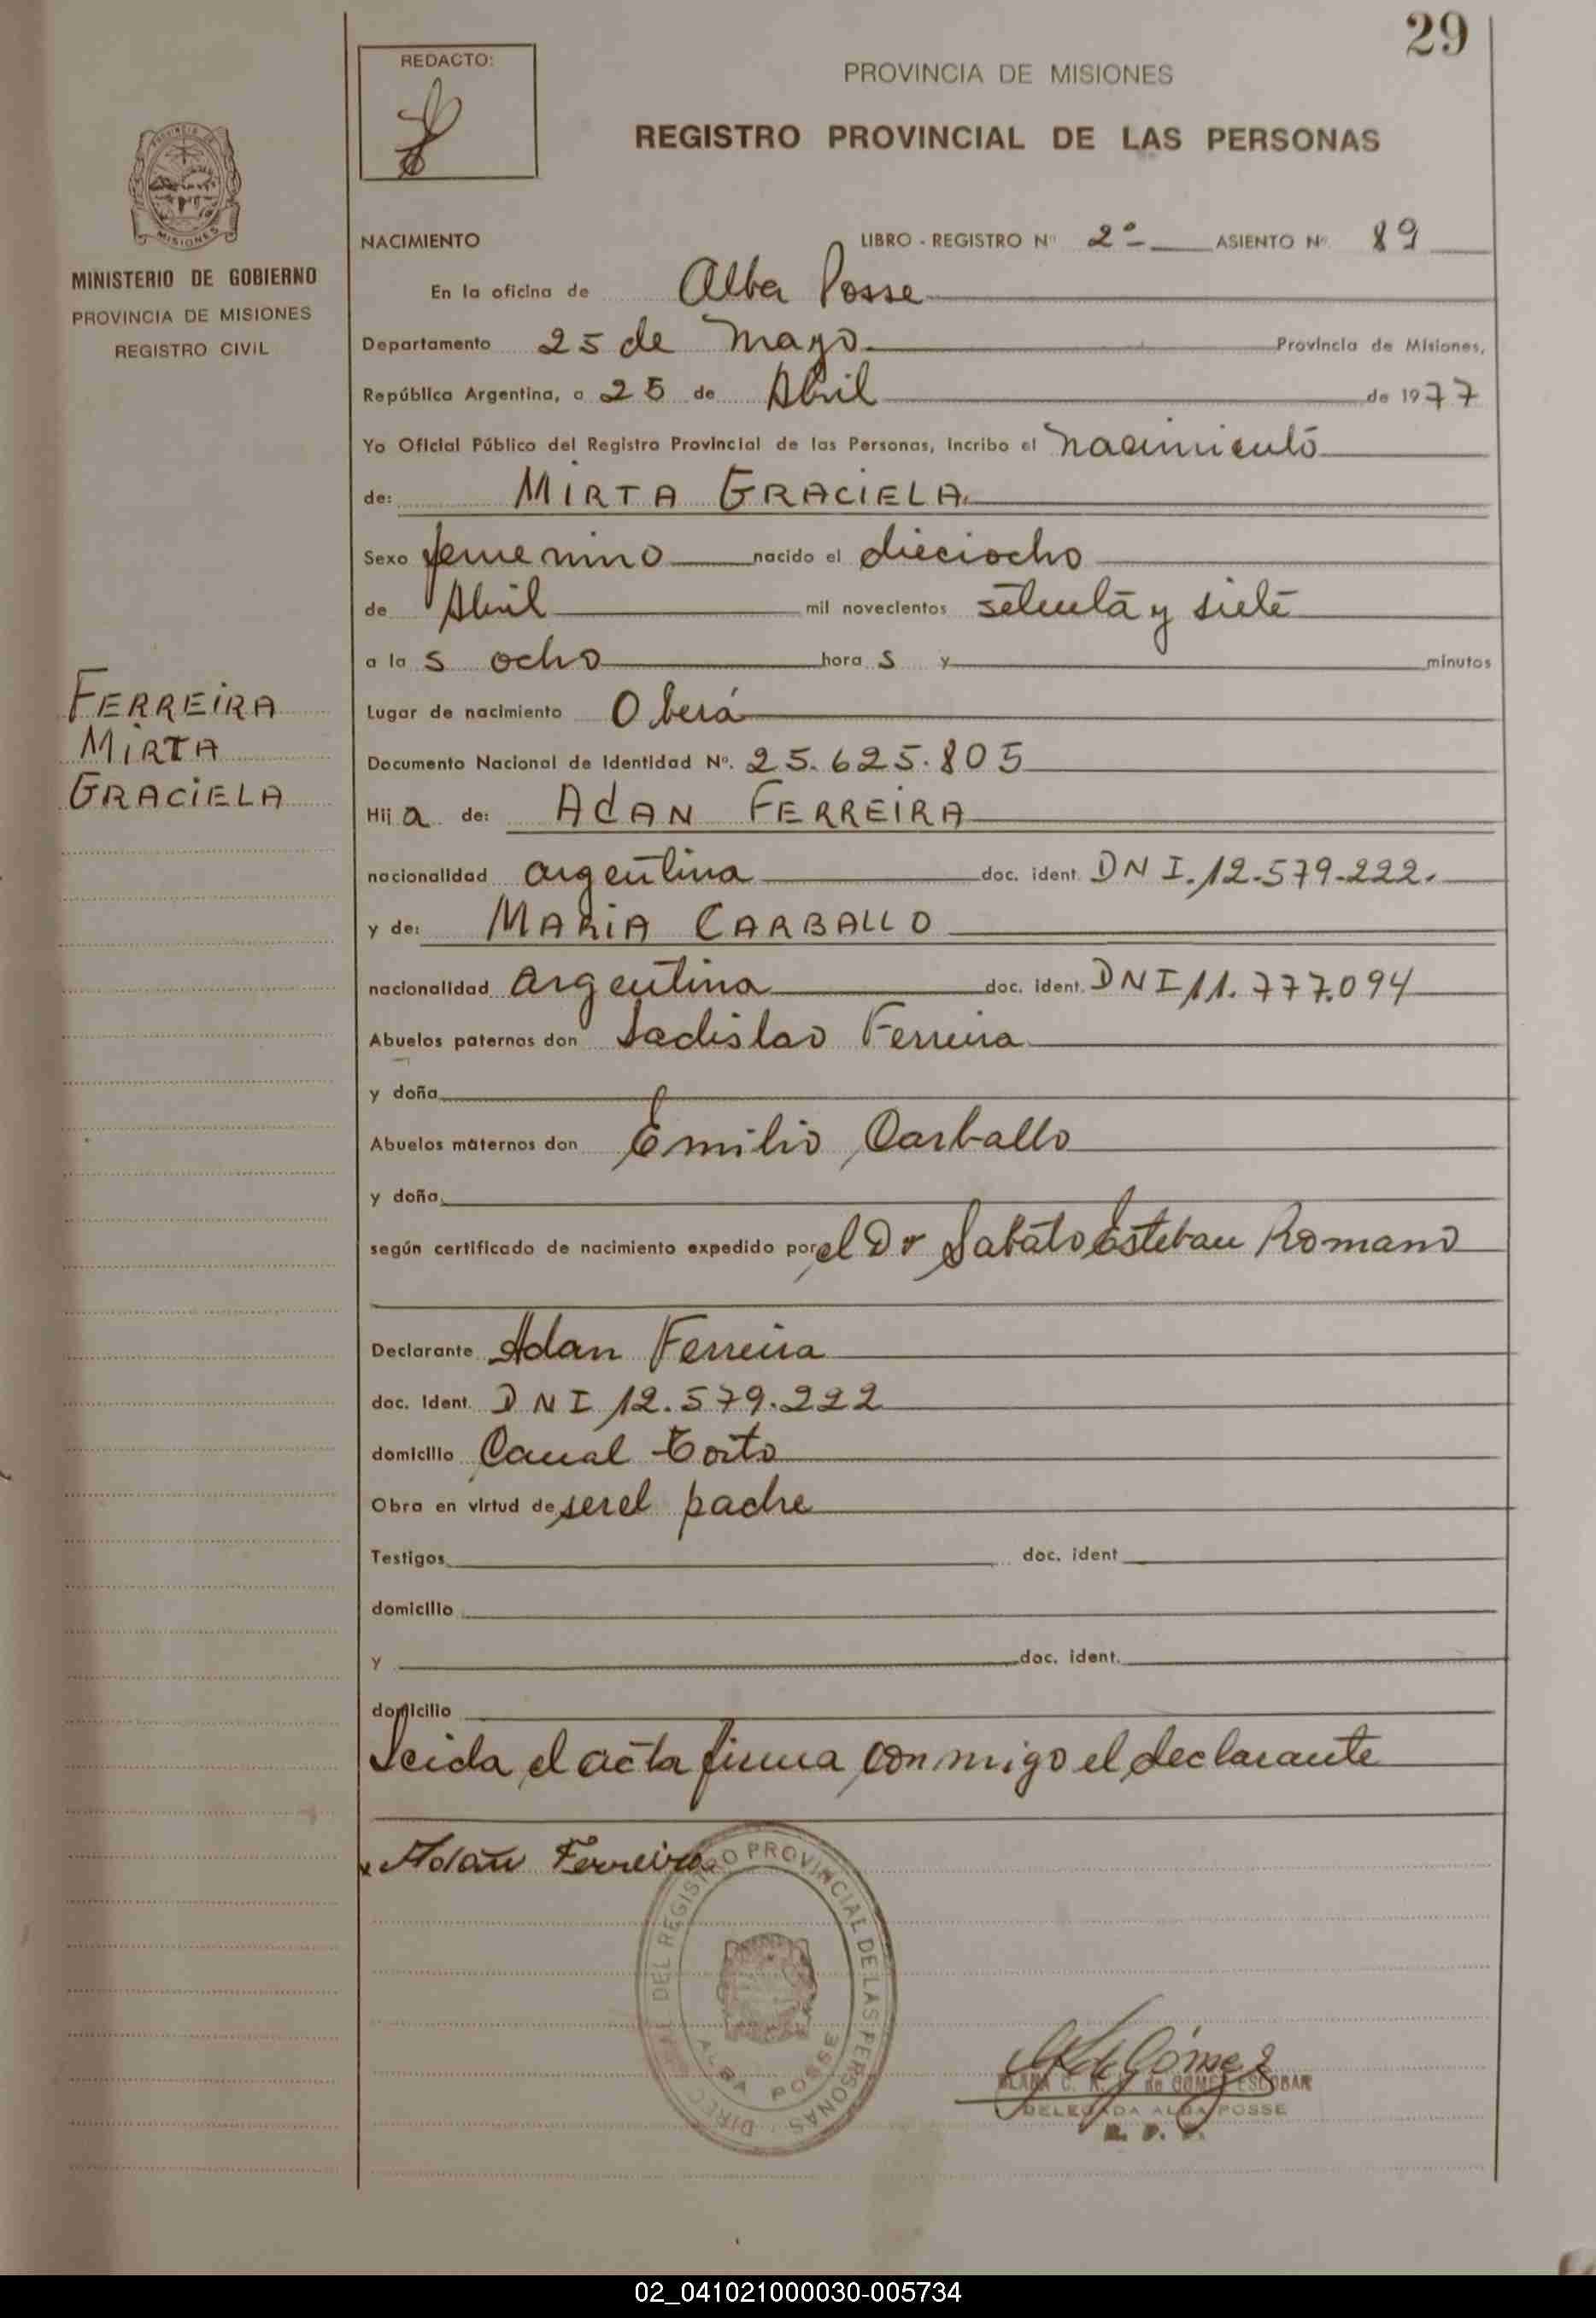 29
REDACTO:
PROVINCIA DE MISIONES
REGISTRO PROVINCIAL DE LAS PERSONAS
PROVINCIA DE
MISIONES
MINISTERIO DE GOBIERNO
PROVINCIA DE MISIONES
REGISTRO CIVIL
FERREIRA
MIRTA
GRACIELA
NACIMIENTO LIBRO - REGISTRO Nº 2º ASIENTO Nº 89
En la oficina de Alba Posse
Departamento 25 de Mayo Provincia de Misiones,
República Argentina, a 25 de Abril de 1977
Yo Oficial Público del Registro Provincial de las Personas, Incribo el nacimiento
de: MIRTA GRACIELA
Sexo femenino nacido el dieciocho
de Abril mil novecientos setenta y siete
a la s ocho hora s y minutos
Lugar de nacimiento Oberá
Documento Nacional de Identidad Nº. 25.625.805
Hij a de: AdAN FERREIRA
nacionalidad argentina doc. ident. DNI.12.579.222.
y de: MARIA CARBALLO
nacionalidad argentina doc. ident. DNI 11.777.094
Abuelos paternos don Ladislao Ferreira
y doña
Abuelos maternos don Emilio Carballo
y doña
según certificado de nacimiento expedido por el Dr Sabato Esteban Romano
Declarante Adan Ferreira
doc. ident. DNI 12.579.222
domicilio Canal Torto
Obra en virtud de ser el padre
Testigos doc. ident
domicilio
y doc. ident.
domicilio
Leida el acta firma conmigo el declarante
Adan Ferreira
DEL REGISTRO PROVINCIAL DE LAS PERSONAS
ALBA POSSE
de GOMEZ ESCOBAR
DELEGADA ALBA POSSE
02_041021000030-005734